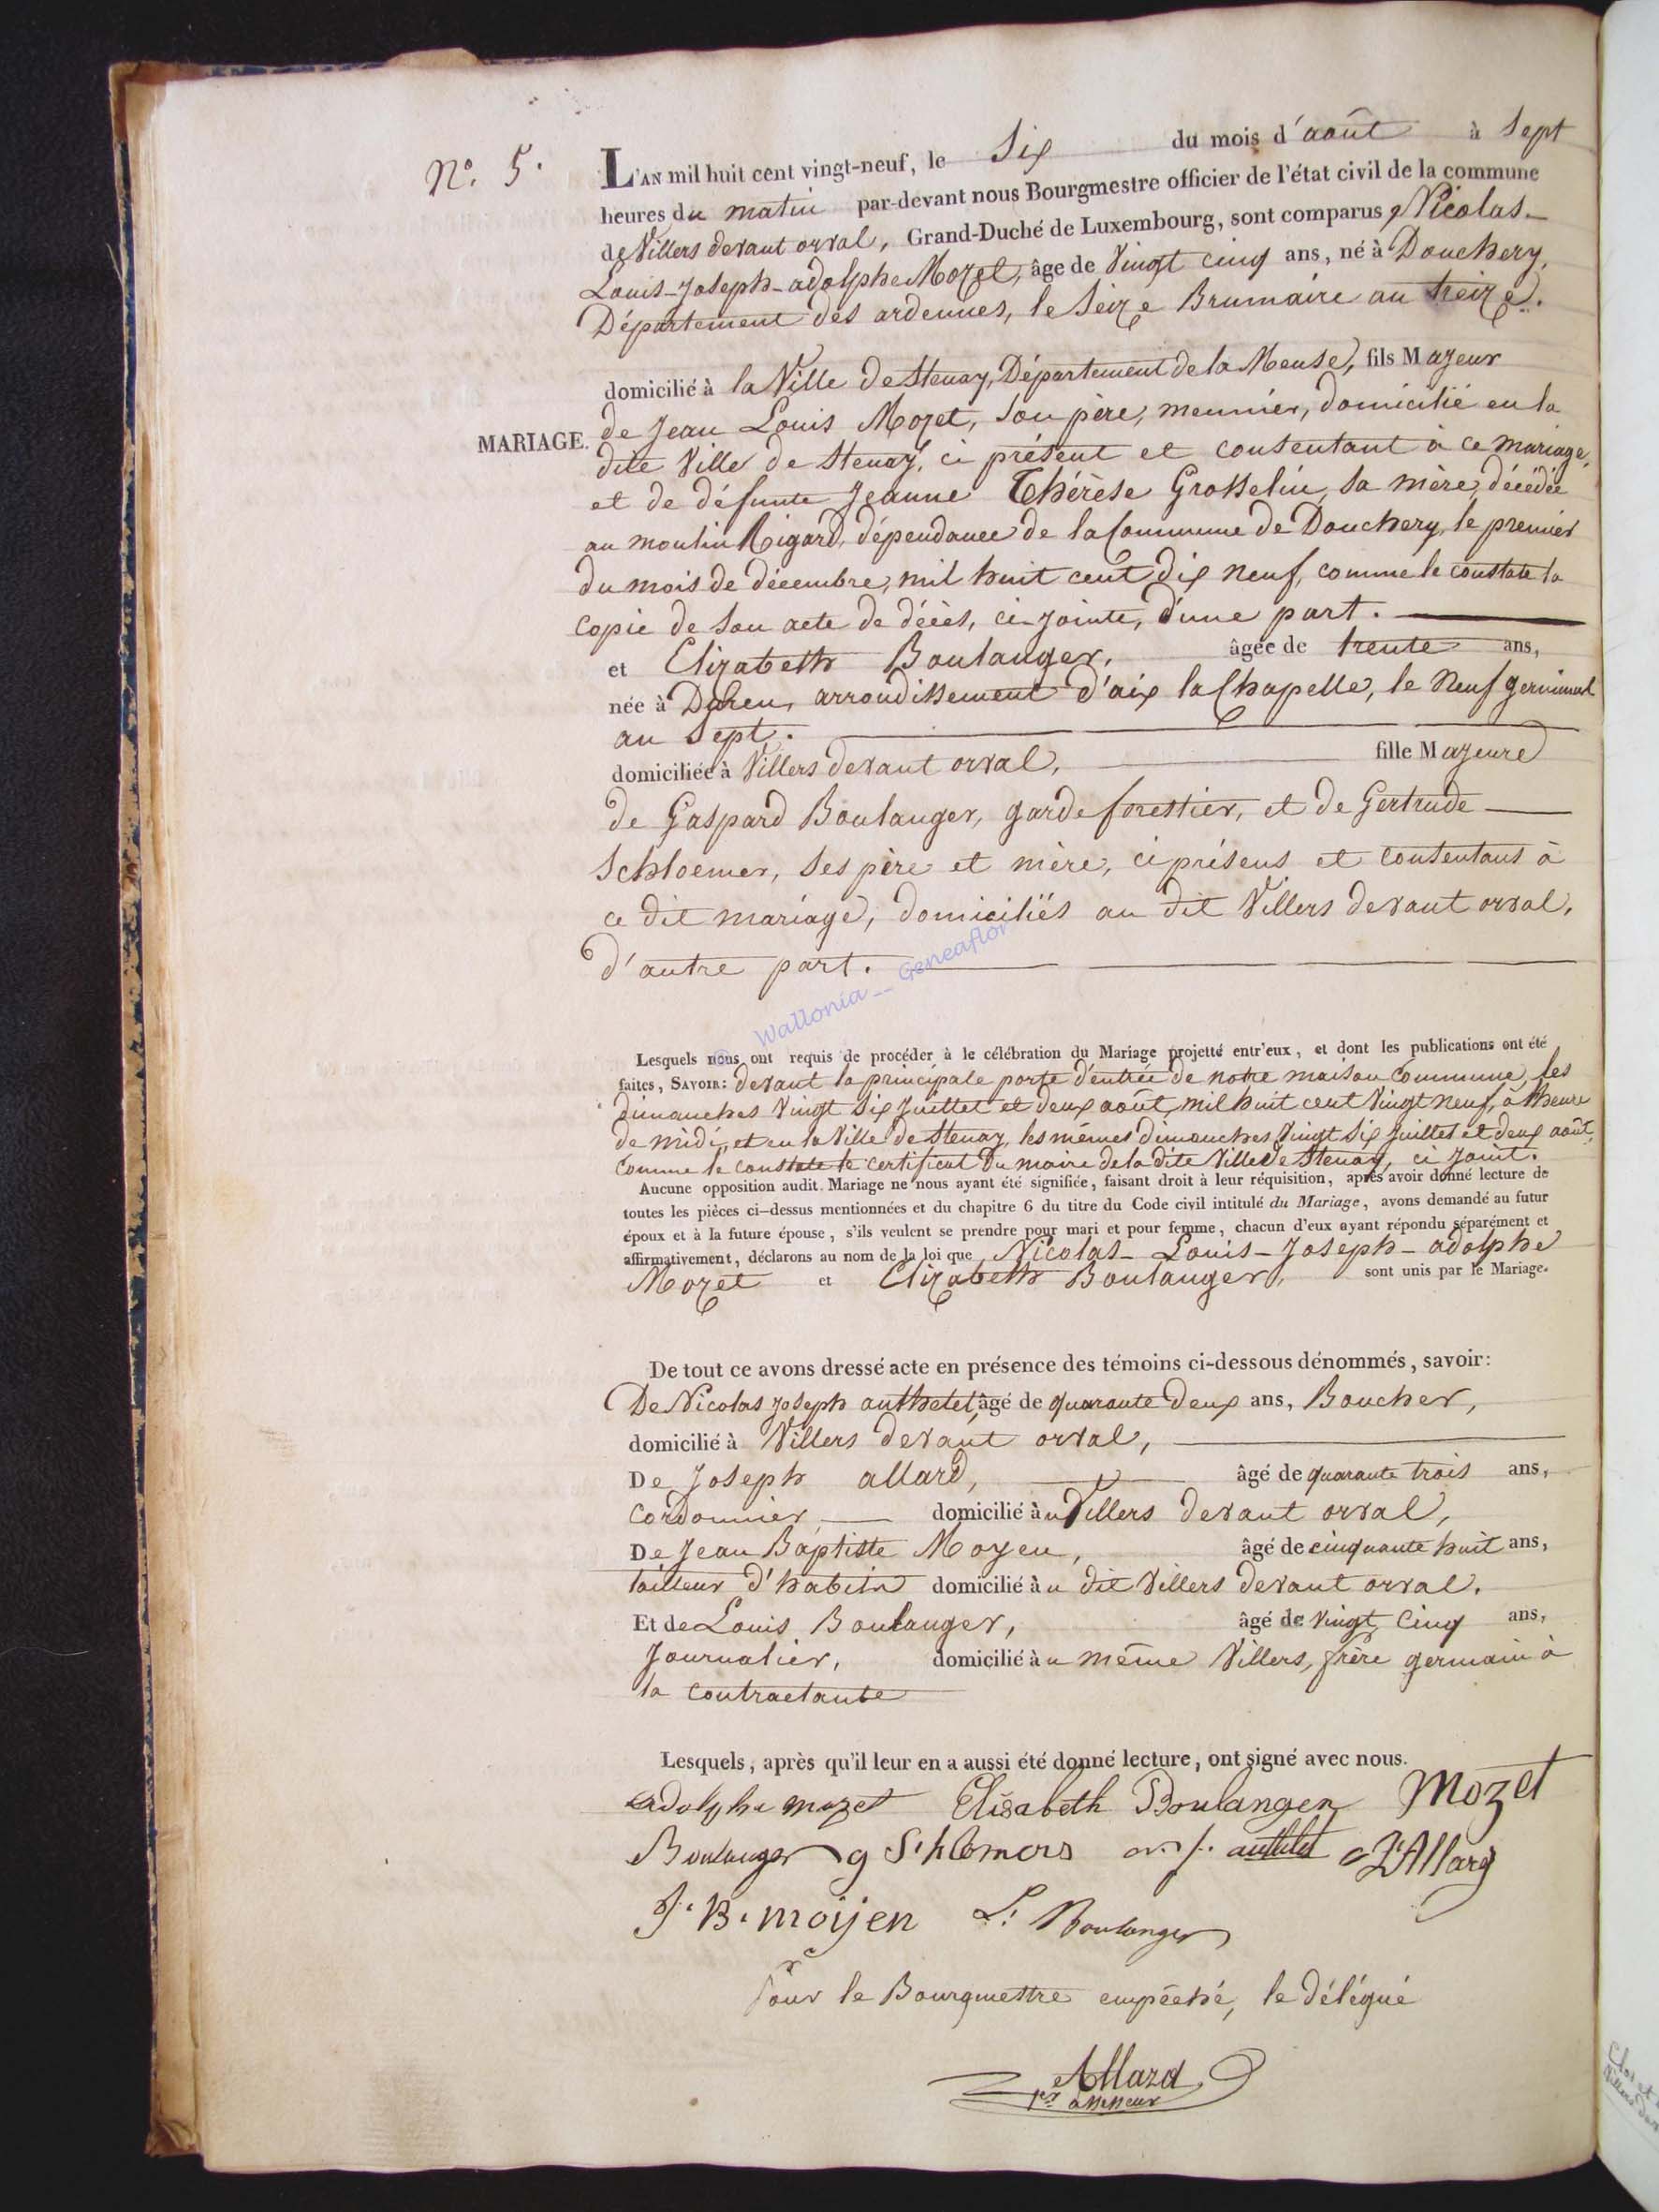 N°. 5.
L'AN mil huit cent vingt-neuf, le Six du mois d'août à Sept
heures du matin par-devant nous Bourgmestre officier de l'état civil de la commune
de Villers devant orval, Grand-Duché de Luxembourg, sont comparus, Nicolas-
Louis-Joseph-adolphe Mozet, âge de Vingt cinq ans, né à Donchery,
Département des ardennes, le Seize Brumaire an treize.
domicilié à la Ville de Stenay, Département de la Meuse, fils Majeur
MARIAGE.
de Jean Louis Mozet, son père, meunier, domicilié en la
dite Ville de Stenay, ci présent et consentant à ce mariage,
et de défunte Jeanne Thérèse Grosselin, sa mère, décédée
au moulin Rigard, dépendance de la Commune de Donchery, le premier
du mois de décembre, mil huit cent dix neuf, comme le constate la
copie de son acte de décès, ci-jointe, d'une part.
et Elizabeth Boulanger, âgée de trente ans,
née à Duren, arrondissement d'aix la Chapelle, le Neuf germinal
an Sept.
domiciliée à Villers devant orval, fille Majeure
de Gaspard Boulanger, garde forestier, et de Gertrude
Schloemer, ses père et mère, ci présens et consentans à
ce dit mariage, domiciliés au dit Villers devant orval,
d'autre part.
Wallonia__Geneaflor
Lesquels nous ont requis de procéder à le célébration du Mariage projetté entr'eux, et dont les publications ont été
faites, SAVOIR: devant la principale porte d'entrée de notre maison Commune, les
dimanches Vingt Six Juillet et deux août, mil huit cent Vingt neuf, à l'heure
de midi, et en la Ville de Stenay, les mêmes Dimanches Vingt Six Juillet et deux août,
comme le constate le certificat du maire de la dite Ville de Stenay, ci joint.
Aucune opposition audit Mariage ne nous ayant été signifiée, faisant droit à leur réquisition, après avoir donné lecture de
toutes les pièces ci-dessus mentionnées et du chapitre 6 du titre du Code civil intitulé du Mariage, avons demandé au futur
époux et à la future épouse, s'ils veulent se prendre pour mari et pour femme, chacun d'eux ayant répondu séparément et
affirmativement, déclarons au nom de la loi que Nicolas-Louis-Joseph-adolphe
Mozet et Elizabeth Boulanger, sont unis par le Mariage.
De tout ce avons dressé acte en présence des témoins ci-dessous dénommés, savoir:
De Nicolas Joseph authelet, âgé de quarante deux ans, Boucher,
domicilié à Villers devant orval,
De Joseph allard, âgé de quarante trois ans,
Cordonnier, domicilié àu Villers devant orval,
De Jean Baptiste Moyen, âgé de cinquante huit ans,
tailleur d'habits domicilié àu dit Villers devant orval.
Et de Louis Boulanger, âgé de Vingt Cinq ans,
Journalier, domicilié àu même Villers, frère germain à
la contractante
Lesquels, après qu'il leur en a aussi été donné lecture, ont signé avec nous.
adolphe mozet Elisabeth Boulanger Mozet
Boulanger g Schlomers n. j. authelet J Allard
J. B. moijen L. Boulanger
Pour le Bourgmestre empêché, le délégué
Allard
1er assesseur